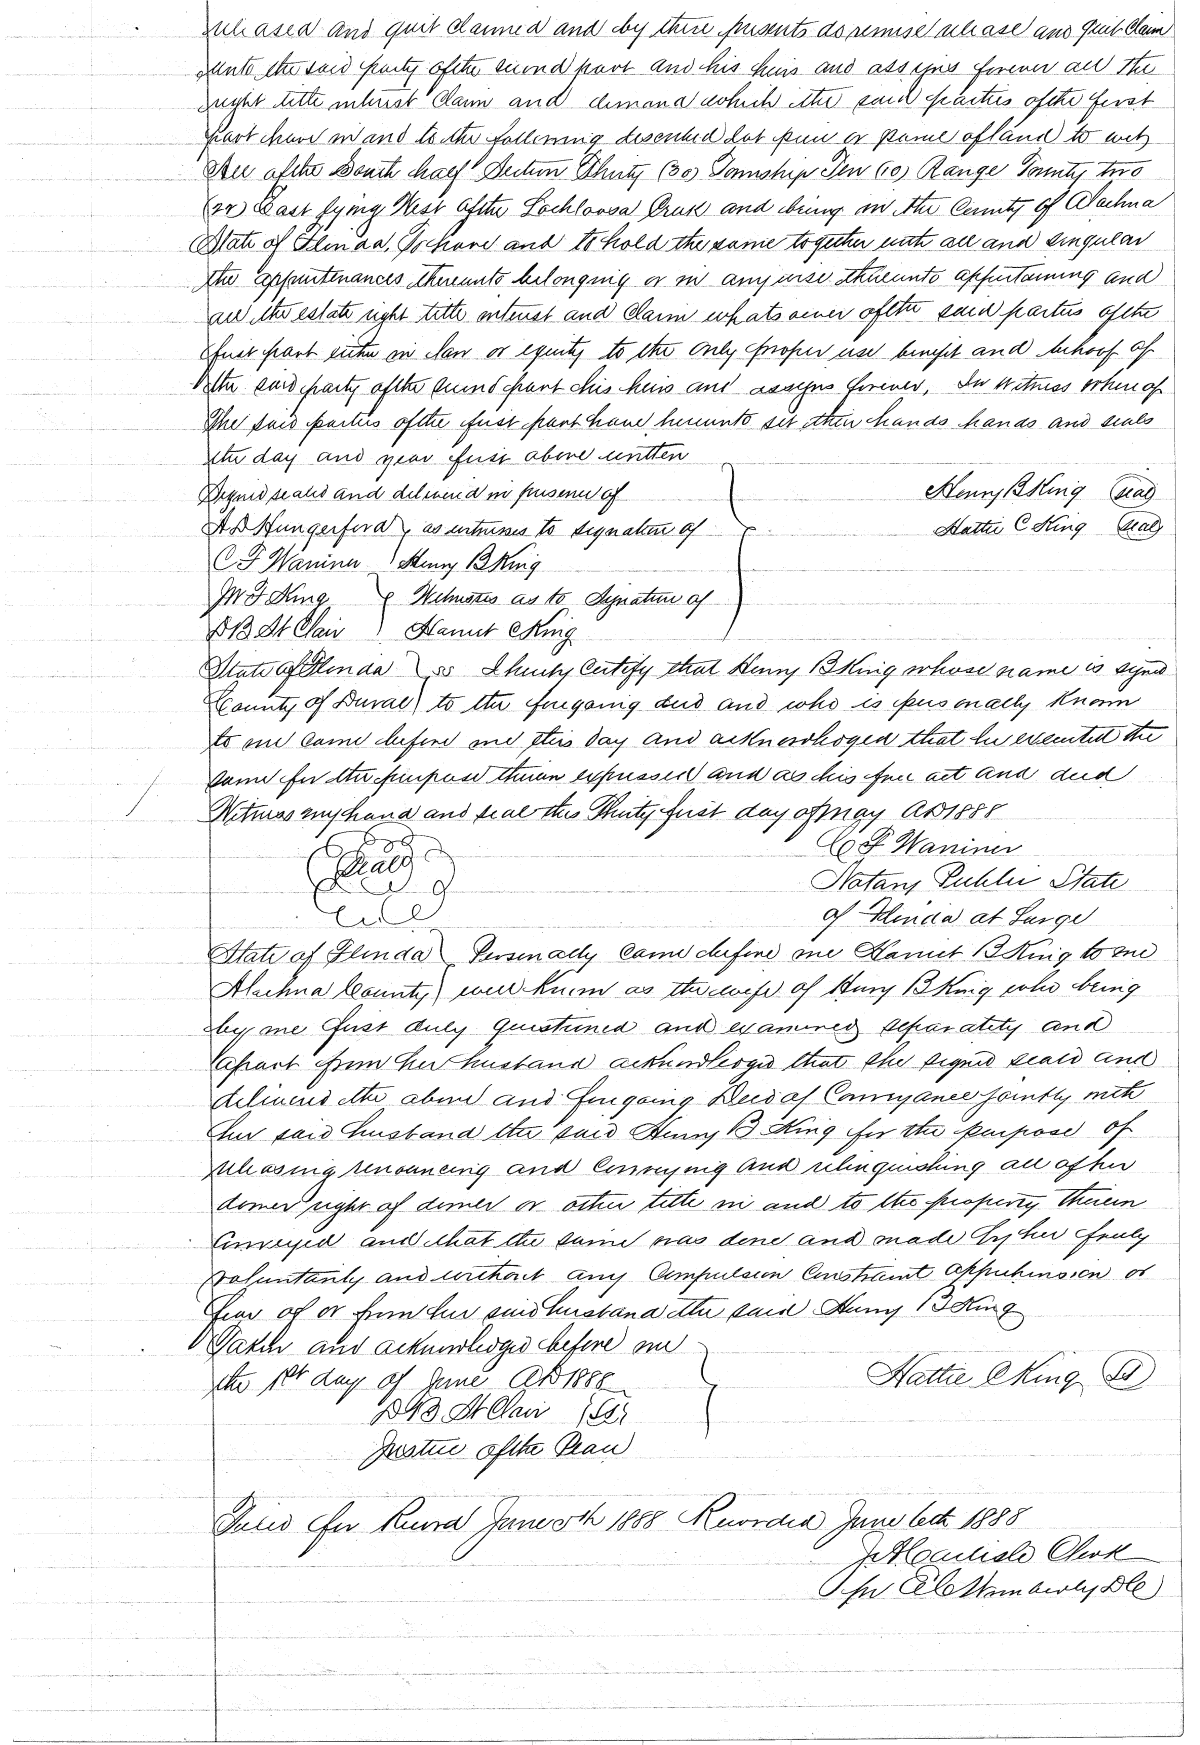 released and quit claimed and by these presents do remise release and quit claim
unto the said party of the second part and his heirs and assigns forever all the
right title interest claim and demand which the said parties of the first
part have in and to the following described lot piece or parcel of land to wit
All of the South half Section Thirty (30) Township Ten (10) Range Twenty two
(22) East lying West of the Lochloosa Creek and being in the County of Alachua
State of Florida, To have and to hold the same together with all and singular
the appurtenances thereunto belonging or in anywise thereunto appertaining and
all the estate right title interest and claim whatsoever of the said parties of the
first part either in law or equity to the only proper use benefit and behoof of
the said party of the second part his heirs and assigns forever, In Witness whereof
The said parties of the first part have hereunto set their hands hands and seals
the day and year first above written
Signed sealed and delivered in presence of
Henry B King (seal)
A D Hungerford as witnesses to signature of
Hattie C King (seal)
C F Waniner Henry B King
M F King Witnesses as to Signature of
D B St Clair Harriet C King
State of Florida ss I hereby certify that Henry B King whose name is signed
County of Duval to the foregoing deed and who is personally known
to me came before me this day and acknowledged that he executed the
same for the purpose therein expressed and as his free act and deed
Witness my hand and seal this Thirty first day of May AD 1888
C F Waniner
(Seal)
Notary Public State
of Florida at Large
State of Florida Personally came before me Harriet B King to me
Alachua County well known as the wife of Henry B King who being
by me first duly questioned and examined separately and
apart from her husband acknowledged that she signed seald and
delivered the above and foregoing Deed of Conveyance jointly with
her said husband the said Henry B King for the purpose of
releasing renouncing and conveying and relinquishing all of her
dower right of dower or other title in and to the property therein
conveyed and that the same was done and made by her freely
voluntarily and without any Compulsion Constraint apprehension or
fear of or from her said husband the said Henry B King
Taken and acknowledged before me
the 1st day of June AD 1888
Hattie C King
D B St Clair
Justice of the Peace
Filed for Record June 5th 1888 Recorded June 6th 1888
Carlisle Clerk
per Wimberly DC